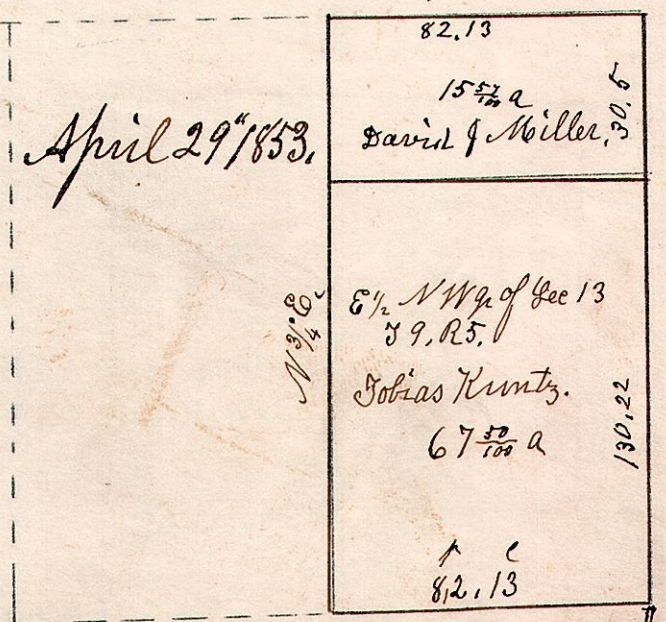 April 29" 1853.
82.13
15 57/100 a
David J Miller.
30.5
N 3/4° E,
E 1/2 N W qr of Sec 13
T 9, R 5.
Tobias Kuntz.
67 50/100 a
130.22
p c
82.13